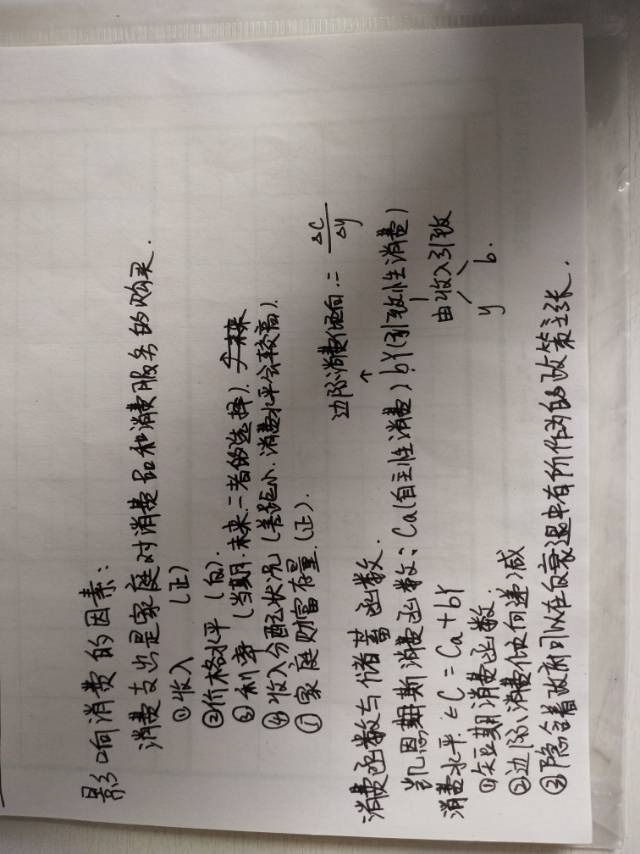 影响消费的因素：
消费支出是家庭对消费品和消费服务的购买．
①收入 (正)
②价格水平 (负)．
③利率 (当期．未来．二者的选择)．
④收入分配状况 (差距小．消费水平会较高)．
① 家庭财富存量．(正)．
消费函数与储蓄函数．
边际消费倾向．= ΔC/Δy
↑
凯恩斯消费函数：Ca(自主性消费) bY(引致性消费)
消费水平．C = Ca + bY
由收入引致
y b．
①短期消费函数．
②边际消费倾向递减
③隐含着政府可以在衰退中有所作为的政策主张．